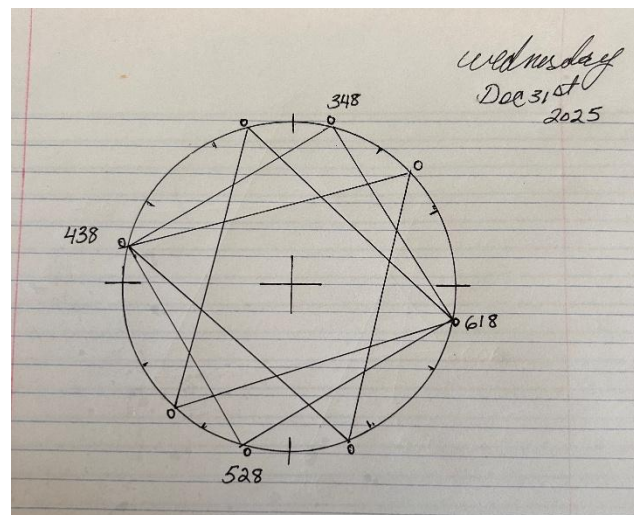 wednesday
Dec 31st
2025
348
438
618
528